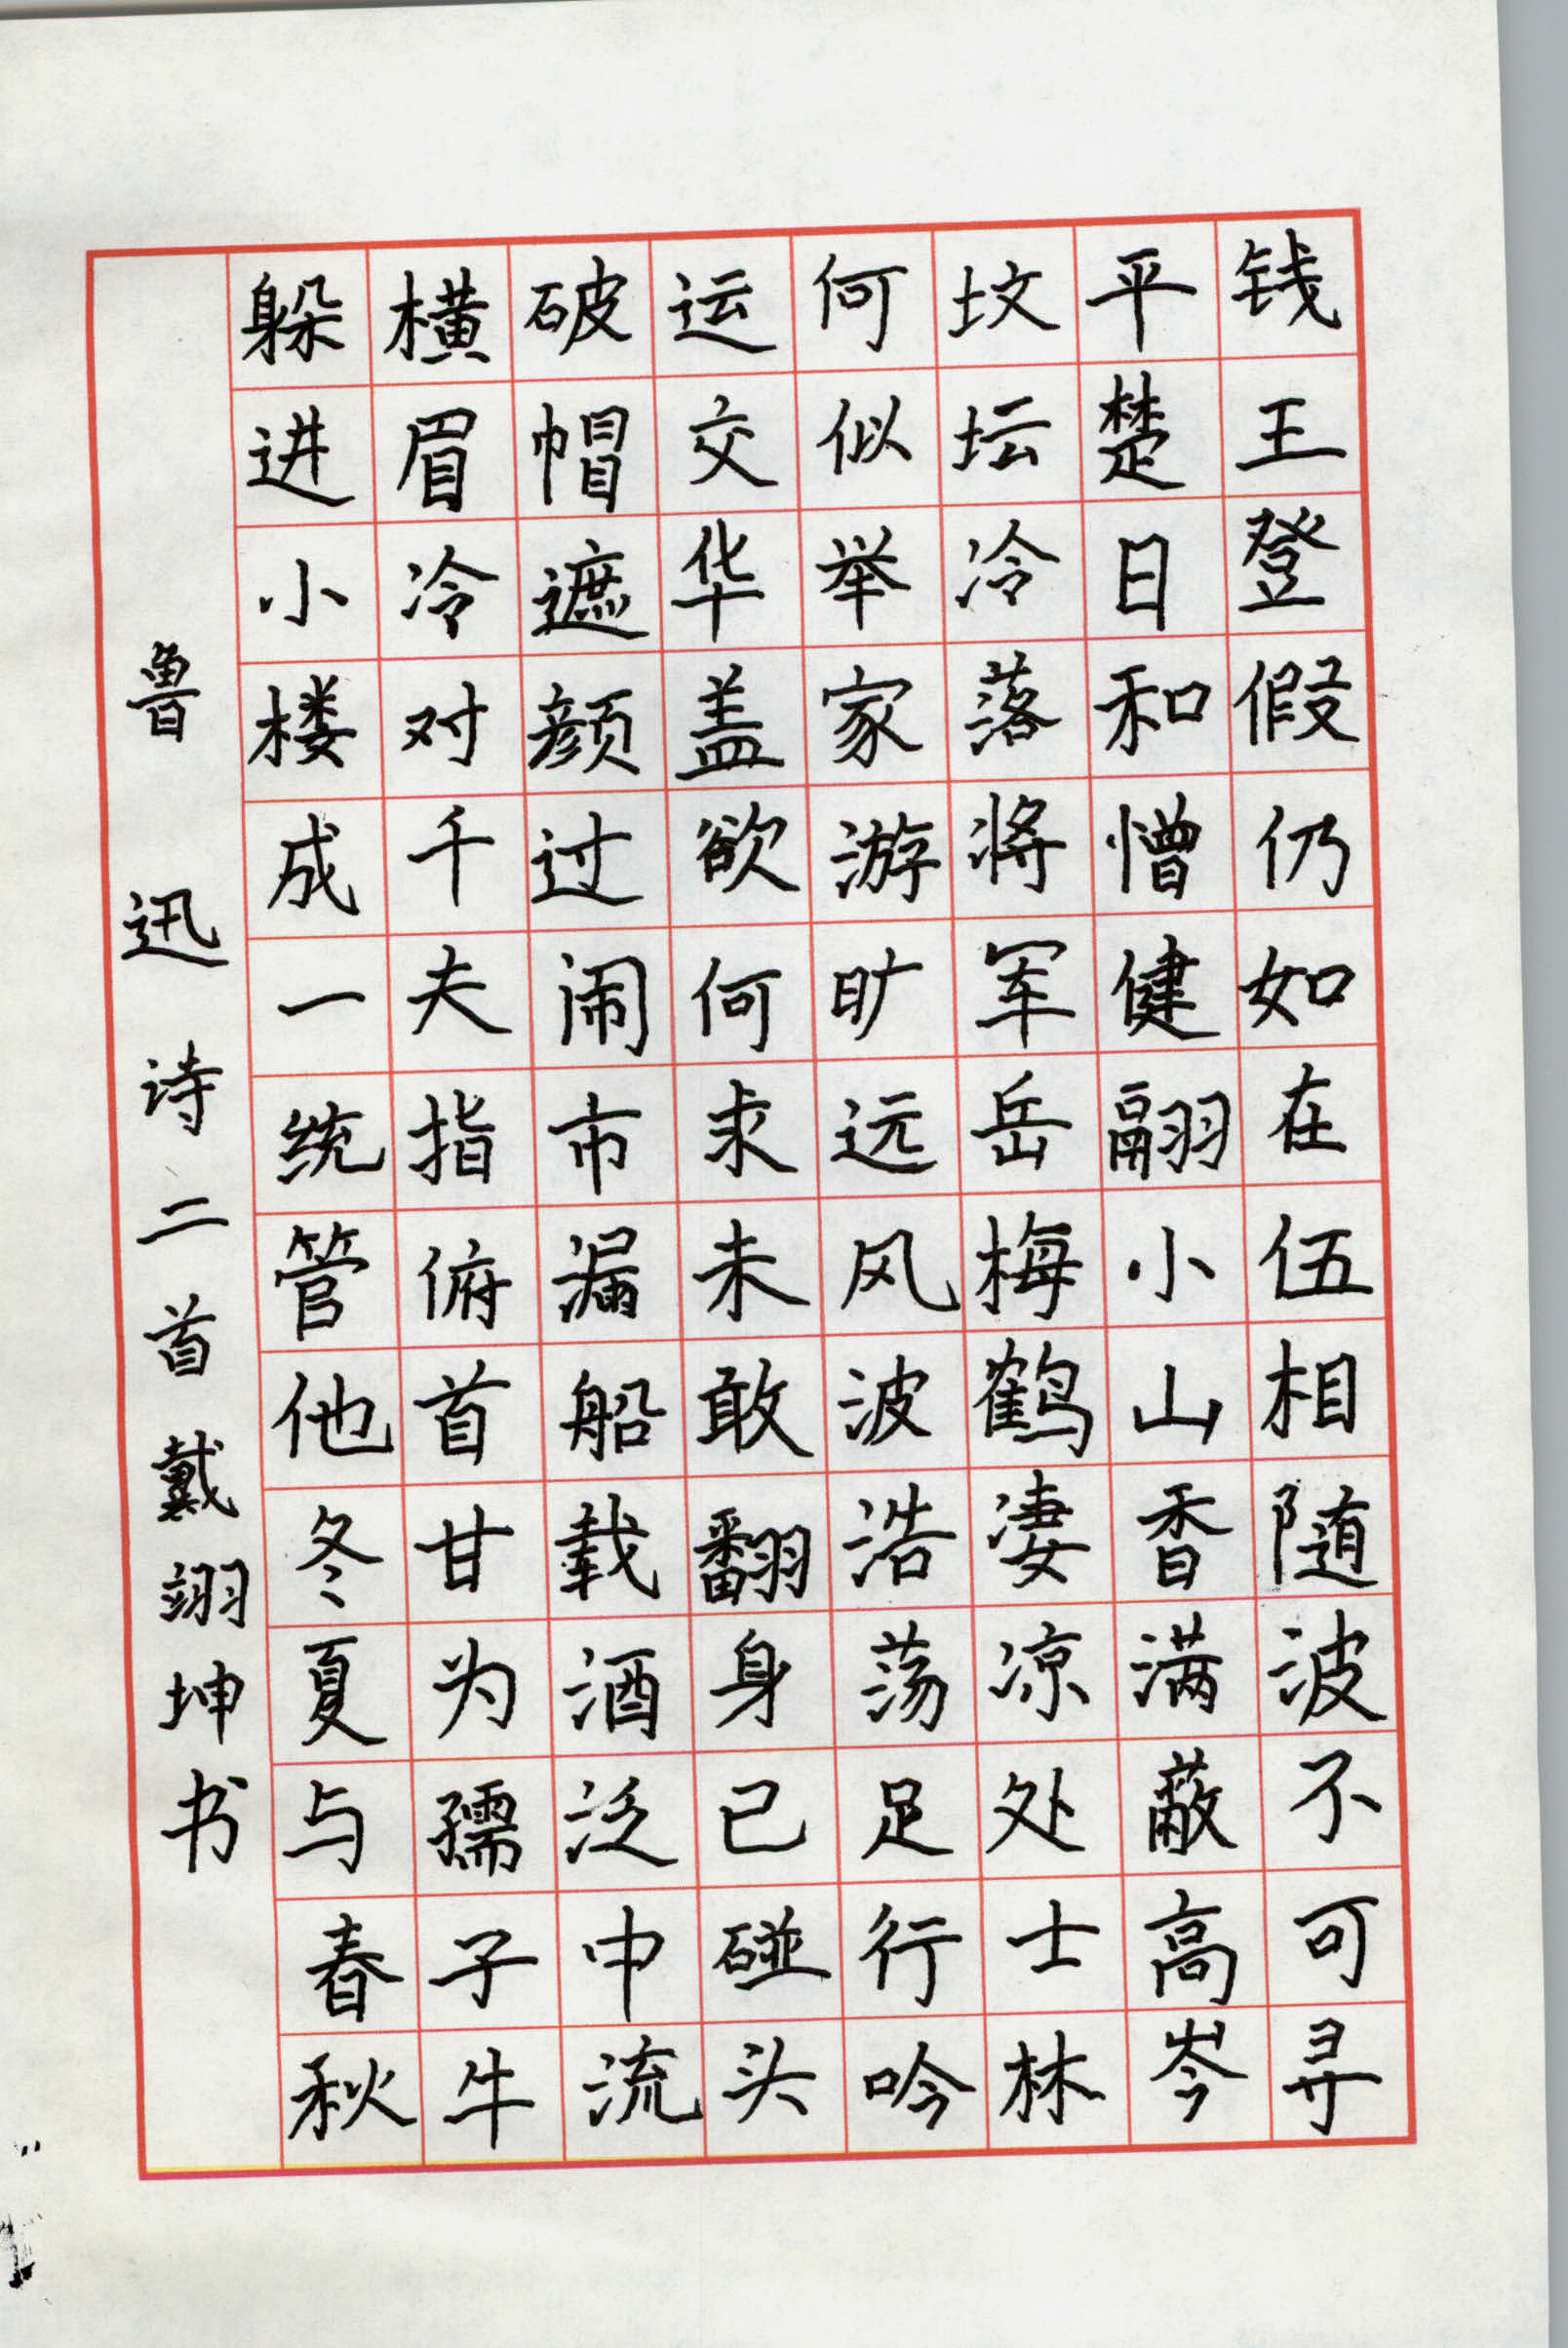 钱王登假仍如在伍相随波不可寻
平楚日和憎健翮小山香满蔽高岑
坟坛冷落将军岳梅鹤凄凉处士林
何似举家游旷远风波浩荡足行吟
运交华盖欲何求未敢翻身已碰头
破帽遮颜过闹市漏船载酒泛中流
横眉冷对千夫指俯首甘为孺子牛
躲进小楼成一统管他冬夏与春秋
鲁迅诗二首戴翊坤书